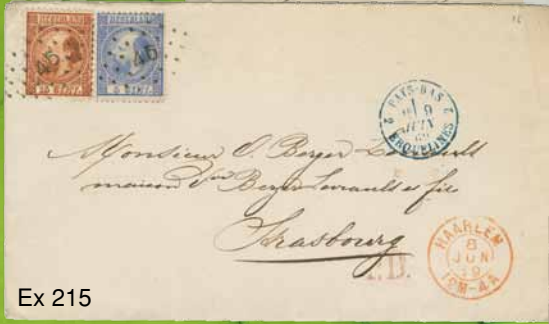 NEDERLAND NEDERLAND
45 45
15 CENT. 5 CENT.
PAYS-BAS
2 9 2
JUIN
69
ERQUELINES
Monsieur O. Berger Levrault
maison Vve Berger Levrault et fils
Strasbourg
P.D.
HAARLEM
8
JUN
69
12M-4A
Ex 215